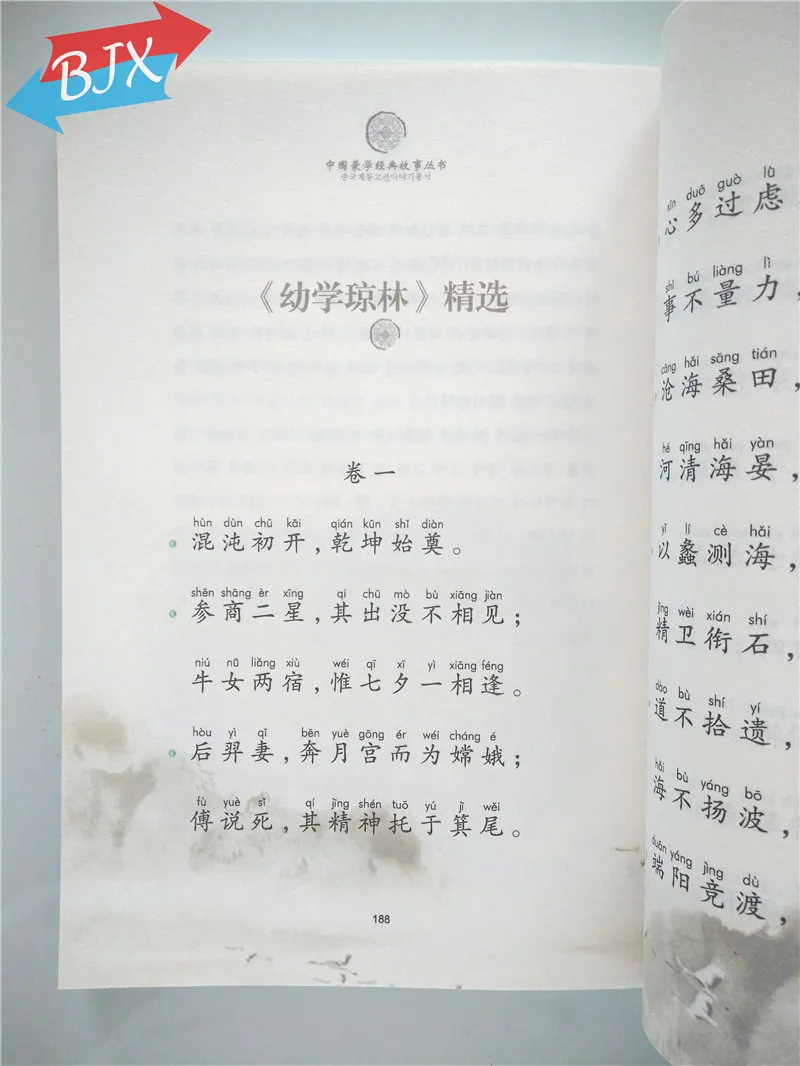 BJX
中国蒙学经典故事丛书
중국계몽고전이야기총서
《幼学琼林》精选
卷一
hùn dùn chū kāi qián kūn shǐ diàn
混沌初开，乾坤始奠。
shēn shāng èr xīng qí chū mò bù xiāng jiàn
参商二星，其出没不相见；
niú nǚ liǎng xiù wéi qī xī yì xiāng féng
牛女两宿，惟七夕一相逢。
hòu yì qī bēn yuè gōng ér wéi cháng é
后羿妻，奔月宫而为嫦娥；
fù yuè sǐ qí jīng shén tuō yú jī wěi
傅说死，其精神托于箕尾。
188
xīn duō guò lǜ
心多过虑
shì bú liàng lì
事不量力，
cāng hǎi sāng tián
沧海桑田，
hé qīng hǎi yàn
河清海晏，
yǐ lí cè hǎi
以蠡测海，
jīng wèi xián shí
精卫衔石，
dào bù shí yí
道不拾遗，
hǎi bù yáng bō
海不扬波，
duān yáng jìng dù
端阳竞渡，